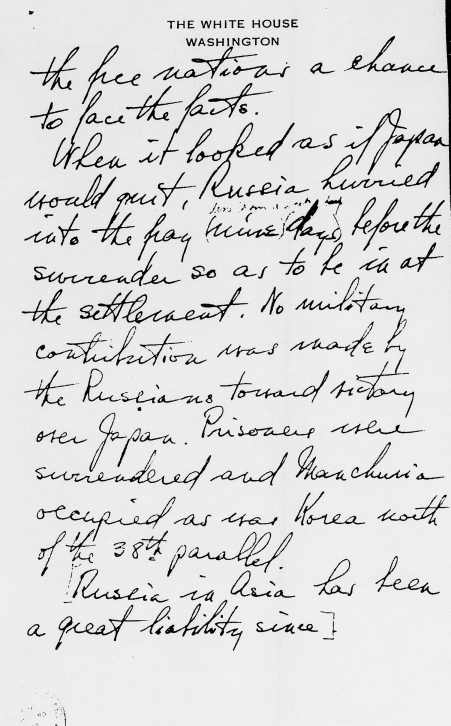 THE WHITE HOUSE
WASHINGTON
the free nations a chance
to face the facts.
When it looked as if Japan
would quit, Russia hurried
less than a month
into the fray (nine) (days) before the
surrender so as to be in at
the settlement. No military
contribution was made by
the Russians toward victory
over Japan. Prisoners were
surrendered and Manchuria
occupied as was Korea north
of the 38th parallel.
[Russia in Asia has been
a great liability since]